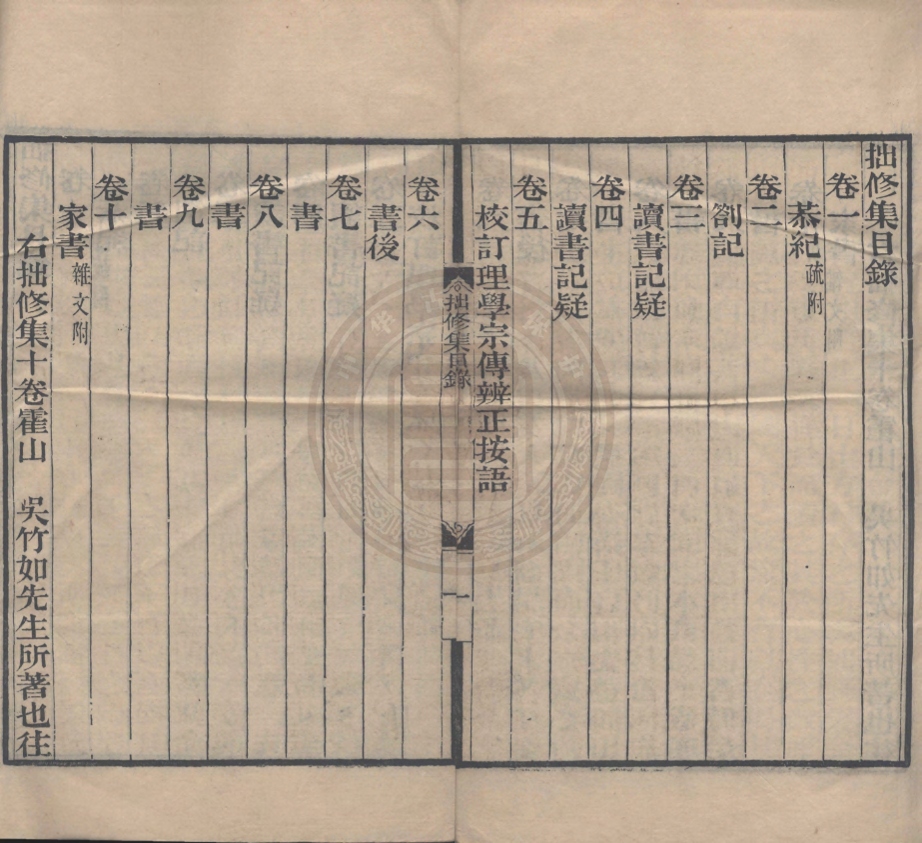 拙修集目錄
卷一
恭紀疏附
卷二
劄記
卷三
讀書記疑
卷四
讀書記疑
卷五
校訂理學宗傳辨正按語
拙修集目錄
一
卷六
書後
卷七
書
卷八
書
卷九
書
卷十
家書雜文附
右拙修集十卷霍山 吳竹如先生所著也往